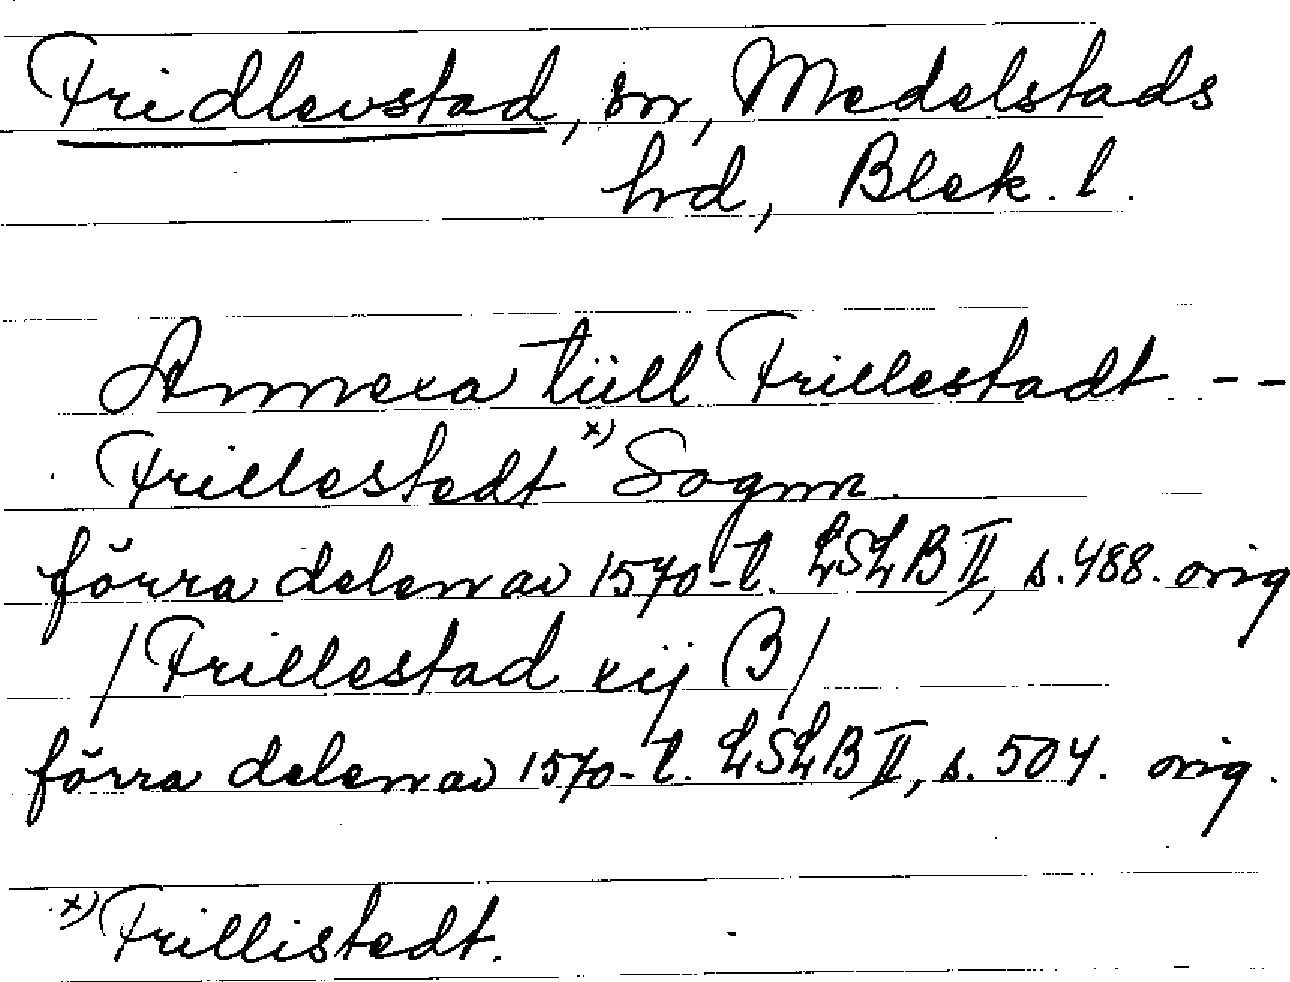 Fridlevstad, sn, Medelstads
hd, Blek. l.
Annexa tüll Frillestadt --
Frillestedt x) Sognn
förra delen av 1570-t. LSLB II, s. 488. orig
/Frillestad xij B/
förra delen av 1570-t. LSLB II, s. 504. orig.
x) Frillistedt.